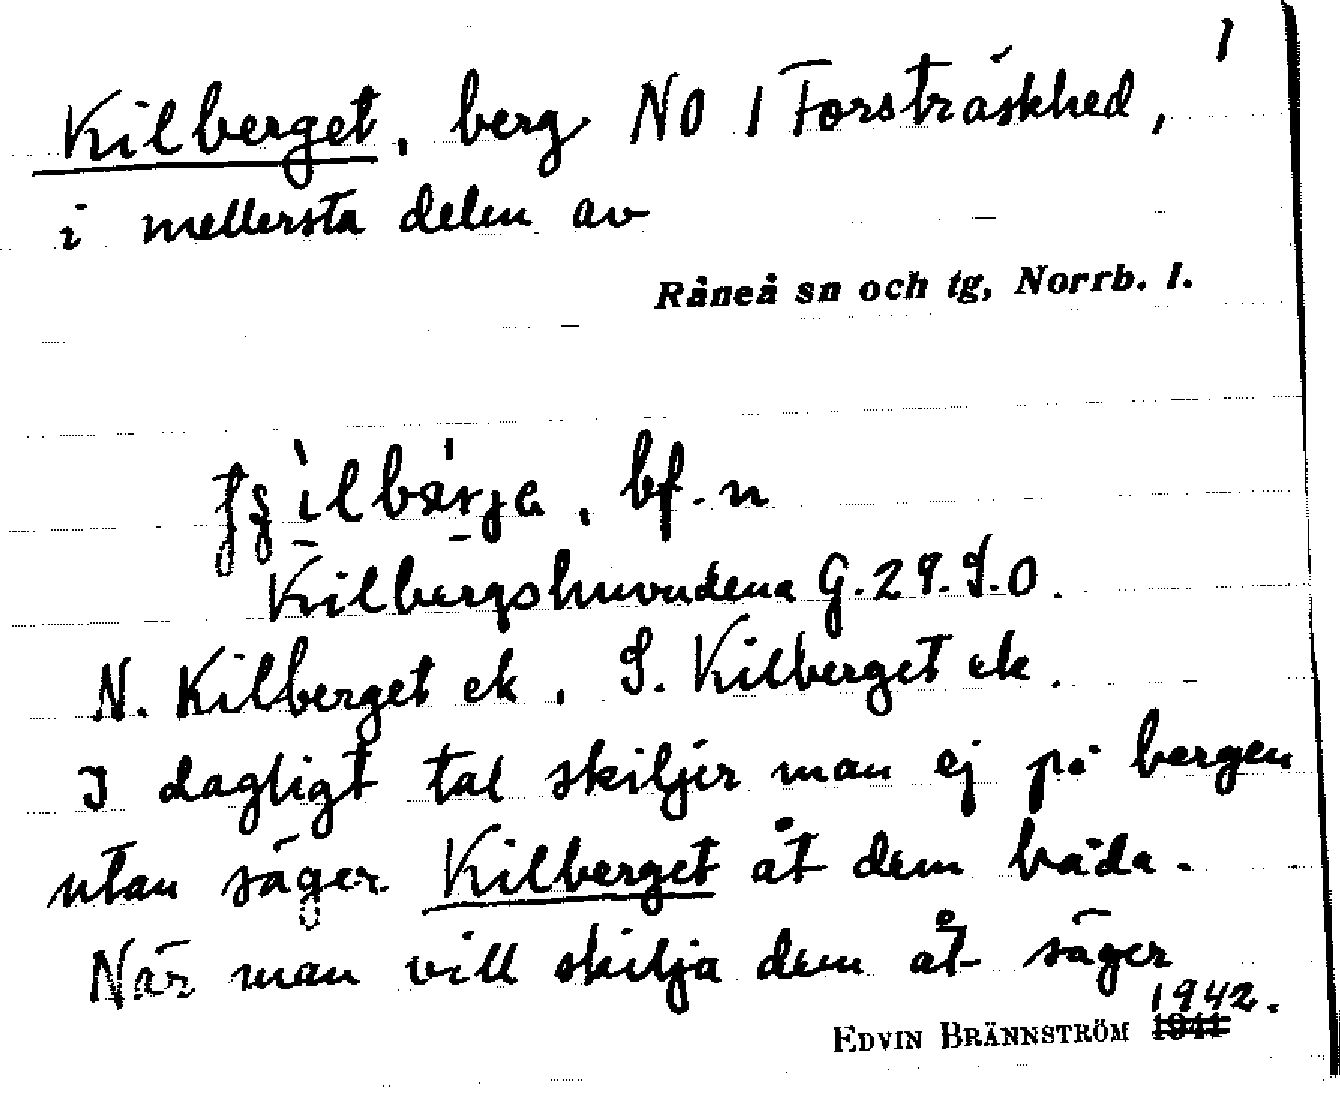 1
Kilberget, berg NO 1 Forsträskhed,
i mellersta delen av
Råneå sn och tg, Norrb. l.
bf. n
Kilbergshuvudena G. 29. S. O.
N. Kilberget ek, S. Kilberget ek.
I dagligt tal skiljer man ej på bergen
utan säger Kilberget åt dem båda.
När man vill skilja dem åt säger
1942.
EDVIN BRÄNNSTRÖM 1941